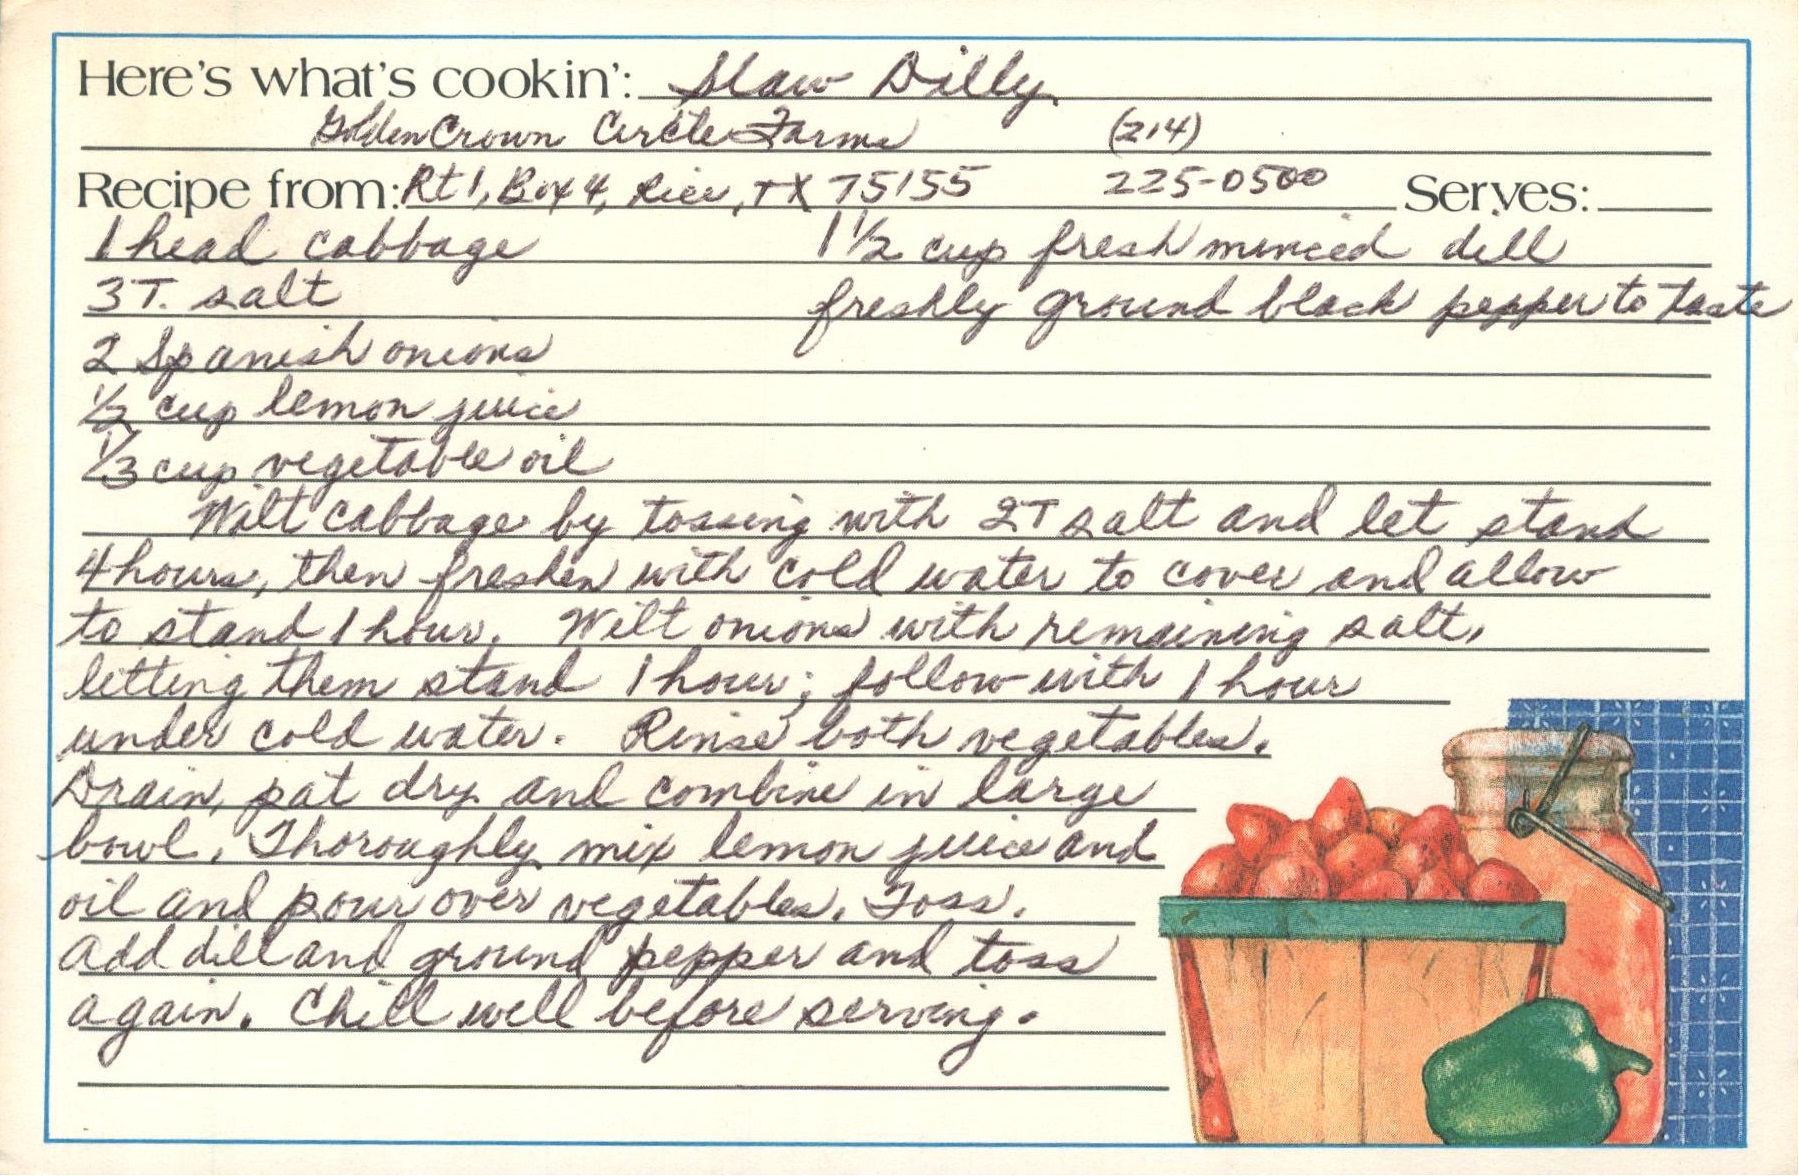 Here's what's cookin': Slaw Dilly
Golden Crown Circle Farms (214)
Recipe from: Rt 1, Box 4, Rice, TX 75155 225-0500 Serves:
1 head cabbage 1 1/2 cup fresh minced dill
3 T. salt freshly ground black pepper to taste
2 Spanish onions
1/2 cup lemon juice
1/3 cup vegetable oil
Wilt cabbage by tossing with 2T salt and let stand
4 hours, then freshen with cold water to cover and allow
to stand 1 hour. Wilt onions with remaining salt,
letting them stand 1 hour; follow with 1 hour
under cold water. Rinse both vegetables.
Drain, pat dry and combine in large
bowl. Thoroughly mix lemon juice and
oil and pour over vegetables. Toss.
Add dill and ground pepper and toss
again. Chill well before serving.